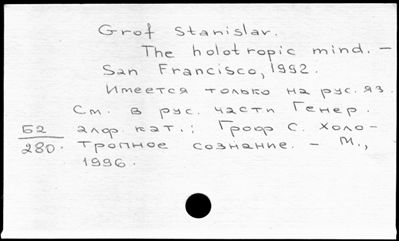 Grof Stanislav.
The holotropic mind. –
San Francisco, 1992.
Имеется только на рус. яз.
См. в рус. части Генер.
Б2 алф. кат.: Гроф С. Холо-
280. тропное сознание. – М.,
1996.